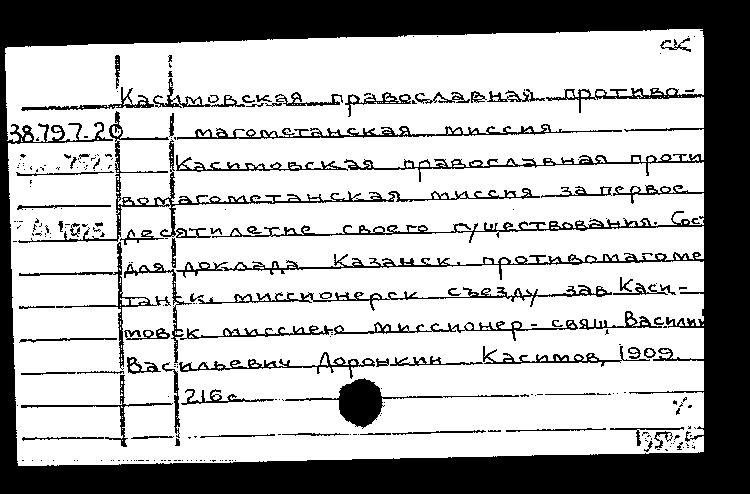 СК
Касимовская православная противо-
38.79.7-20 магометанская миссия.
Касимовская православная проти
вомагометанская миссия за первое
десятилетие своего существования. Сост
для доклада Казанск. противомагоме
танск. миссионерск съезду зав Каси-
мовск миссиею миссионер-свящ. Василий
Васильевич Доронкин Касимов, 1909.
216 с